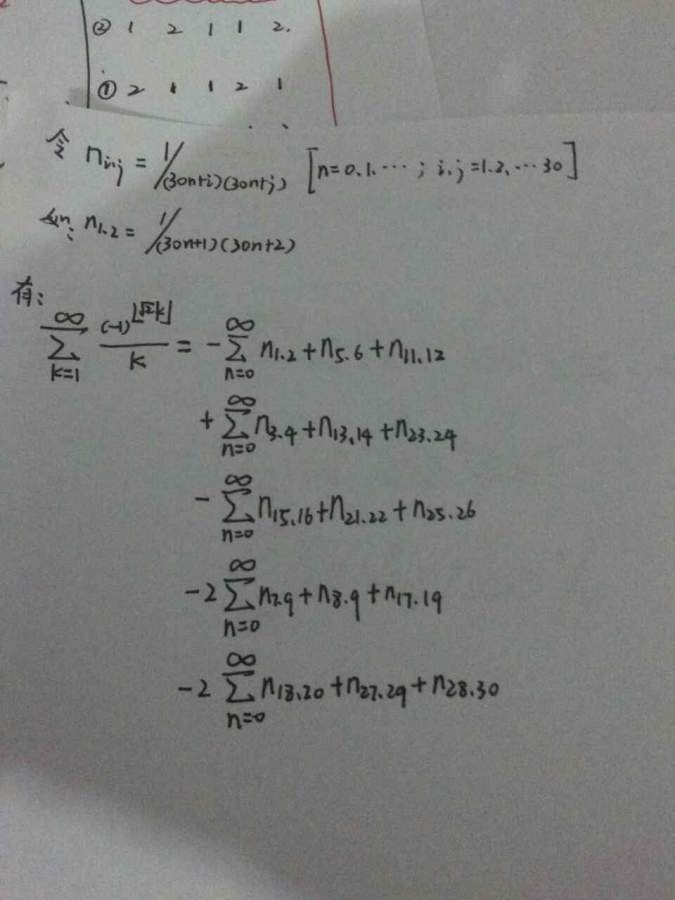 ② 1 2 1 1 2.
① 2 1 1 2 1
令 n_{i,j} = 1/(30n+i)(30n+j) [n=0.1.…; i.j=1.2.…30]
如: n_{1.2} = 1/(30n+1)(30n+2)
有:
\sum_{k=1}^{∞} \frac{(-1)^{⌊√2k⌋}}{k} = -\sum_{n=0}^{∞} n_{1.2}+n_{5.6}+n_{11.12}
+ \sum_{n=0}^{∞} n_{3.4}+n_{13.14}+n_{23.24}
- \sum_{n=0}^{∞} n_{15.16}+n_{21.22}+n_{25.26}
-2 \sum_{n=0}^{∞} n_{7.9}+n_{8.9}+n_{17.19}
-2 \sum_{n=0}^{∞} n_{18.20}+n_{27.29}+n_{28.30}